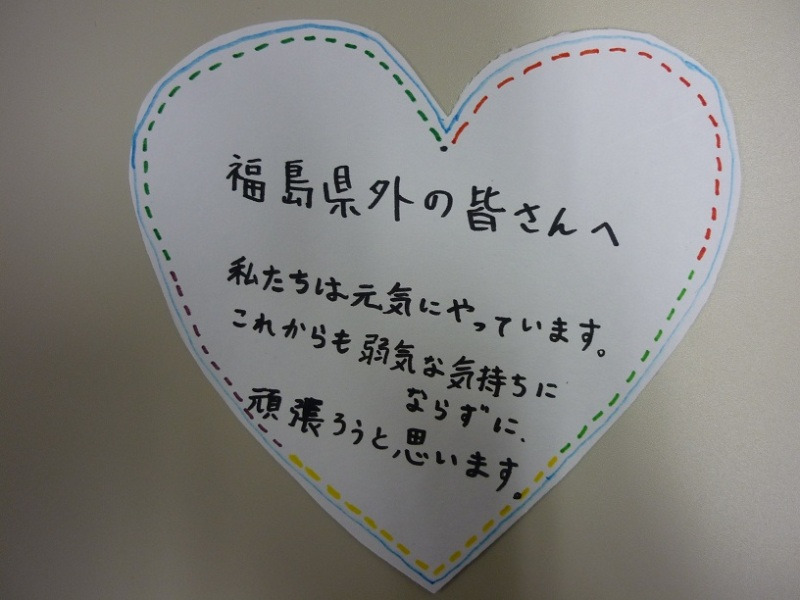 福島県外の皆さんへ
私たちは元気にやっています。
これからも弱気な気持ちに
ならずに、
頑張ろうと思います。